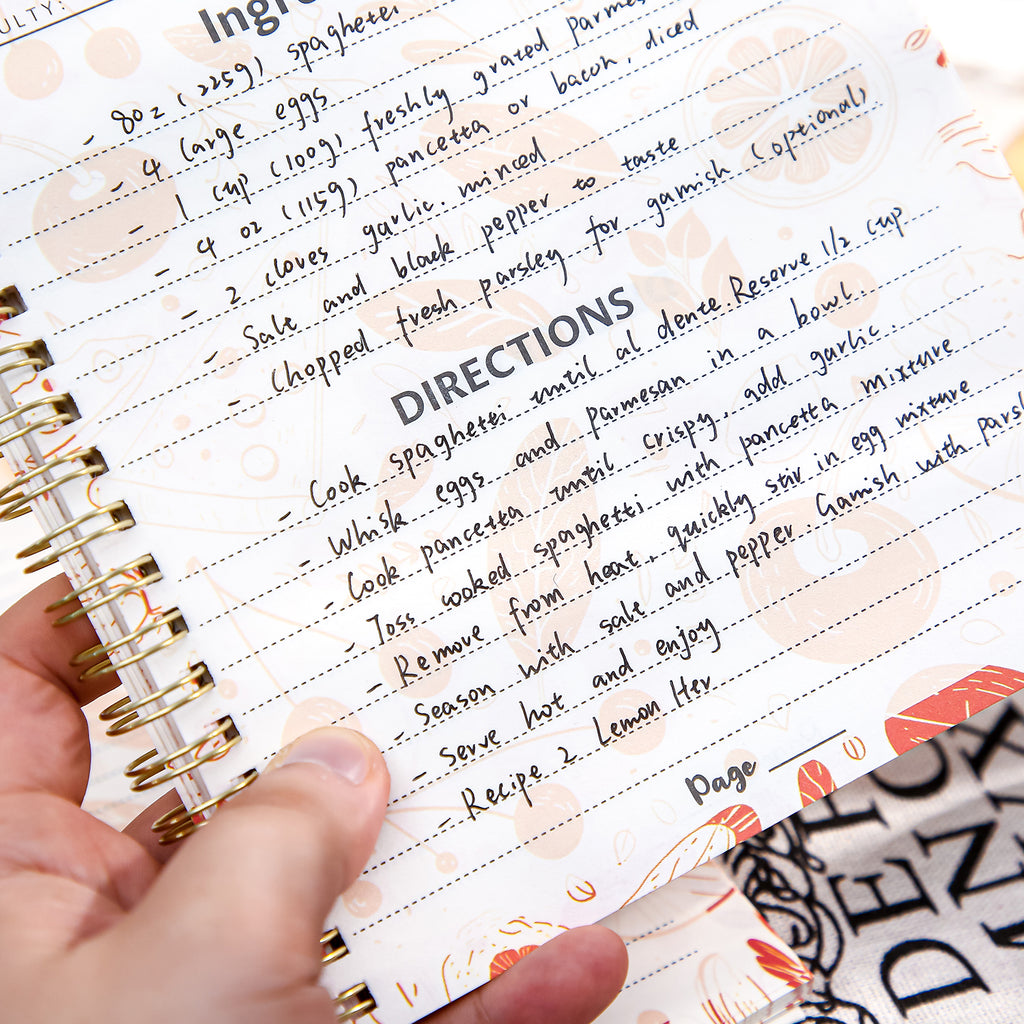 ULTY:
Ingre
- 8oz (225g) spaghetti
- 4 large eggs
- 1 cup (100g) freshly grated Parmes
- 4 oz (115g) pancetta or bacon, diced
- 2 cloves garlic, minced
- Salt and black pepper to taste
- Chopped fresh parsley for garnish (optional)
DIRECTIONS
- Cook spaghetti until al dente. Reserve 1/2 cup
- Whisk eggs and Parmesan in a bowl.
- Cook pancetta until crispy, add garlic.
- Toss cooked spaghetti with pancetta mixture
- Remove from heat, quickly stir in egg mixture
- Season with salt and pepper. Garnish with parsl
- Serve hot and enjoy
- Recipe 2 Lemon Her
Page